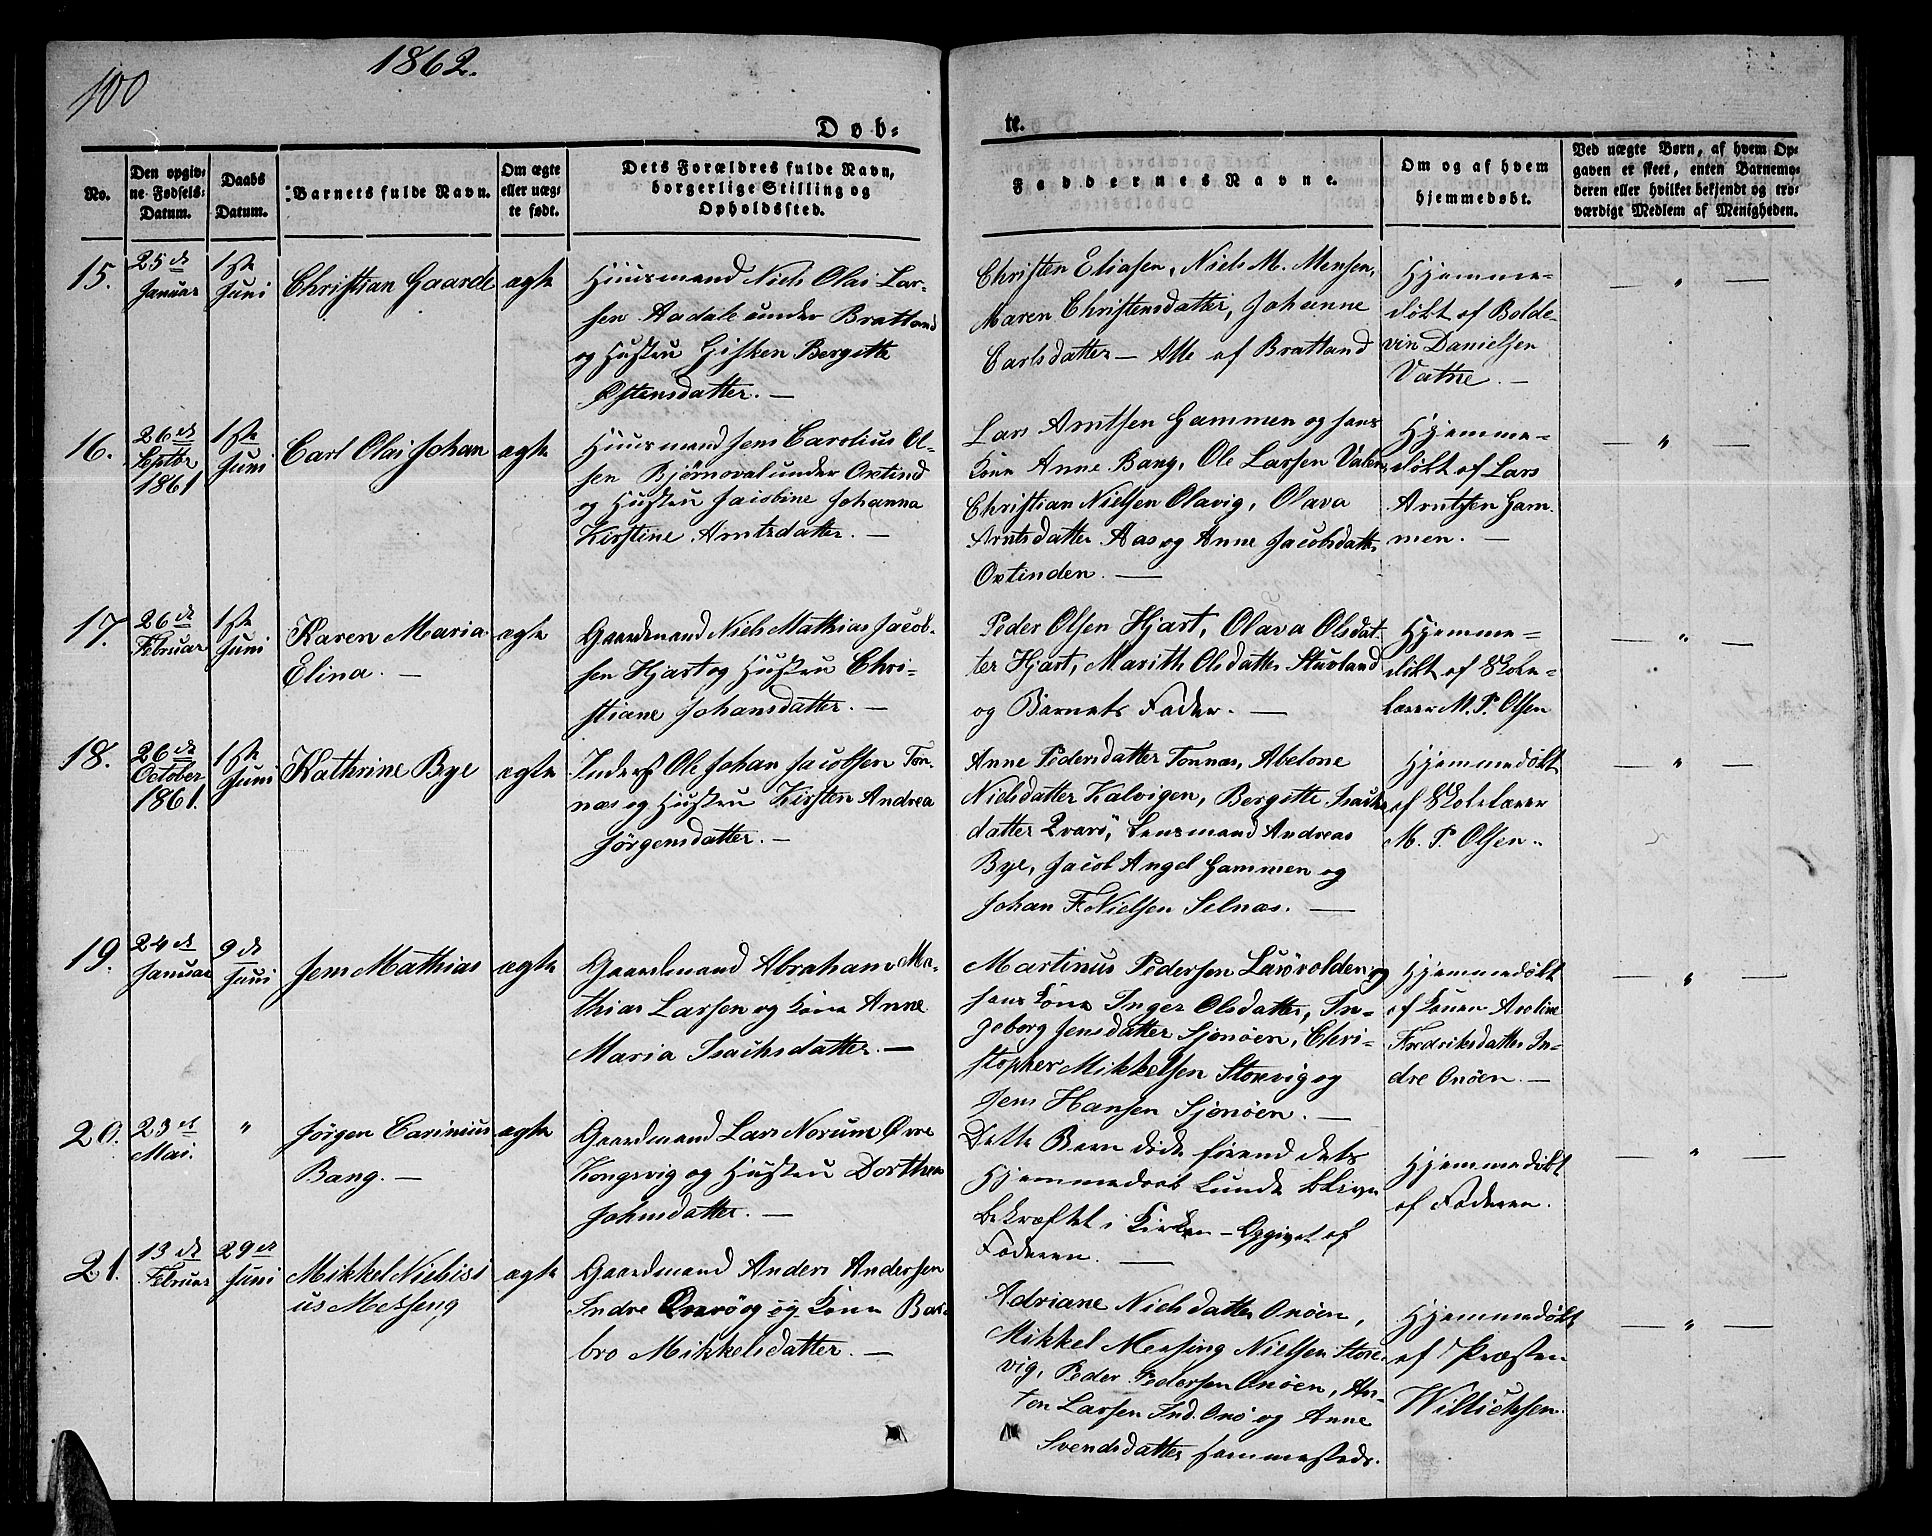 100
1862.
Døb-
te.
No.
Den opgiv-
ne Fødsels-
Datum.
Daabs
Datum.
Barnets fulde Navn.
Om ægte
eller uæg-
te født.
Dets Forældres fulde Navn,
borgerlige Stilling og
Opholdssted.
Faddernes Navne.
Om og af hvem
hjemmedøbt.
Ved uægte Børn, af hvem Op-
gaven er skeet, enten Barnemo-
deren eller hvilket bekjendt og tro-
værdigt Medlem af Menigheden.
15.
25de
Januar
1ste
Juni
Christian Gaarde
ægte
Huusmand Niels Olai Lar-
sen Aadale under Bratland
og Hustru Gisken Bergitte
Østensdatter. —
Christen Eliasen, Niels M. Monsen,
Maren Christensdatter, Johanne
Carlsdatter — Alle af Bratland
Hjemme-
døbt af Bolde-
vin Danielsen
Vatne. —
— " —
16.
26de
Septbr
1861
1ste
Juni
Carl Olai Johan
ægte
Huusmand Jens Carolius Ol-
sen Bjørnoval under Oxtind
og Hustru Jacobine Johanna
Kirstine Arntsdatter. —
Lars Arntsen Gammen og hans
Kone Anne Bang, Ole Larsen Valen,
Christian Nielsen Olavig, Olava
Arntsdatter Aas og Anne Jacobsdatter
Oxtinden. —
Hjemme-
døbt af Lars
Arntsen Gam-
men. —
— " —
17.
26de
Februar
1ste
Juni
Karen Maria
Elina. —
ægte
Gaardmand Niels Mathias Jacob-
sen Hjart og Hustru Chri-
stiane Johansdatter. —
Peder Olsen Hjart, Olava Olsdat-
ter Hjart, Marith Olsdatter Stuvland
og Barnets Fader. —
Hjemme-
døbt af Skole-
lærer M. P. Olsen
— " —
18.
26de
October
1861.
1ste
Juni
Kathrine Bye
ægte
Inderst Ole Johan Jacobsen Ton-
næs og Hustru Kirsten Andrea
Jørgensdatter. —
Anne Pedersdatter Tonnæs, Abelone
Nielsdatter Kalvigen, Bergitte Isachs
datter Qvarø, Lensmand Andreas
Bye, Jacob Angel Gammen og
Johan F. Nielsen Selnæs. —
Hjemmedøbt
af Skolelærer
M. P. Olsen.
— " —
19.
24de
Januar
9de
Juni
Jens Mathias
ægte
Gaardmand Abraham Ma-
thias Larsen og Kone Anne
Maria Isachsdatter. —
Martinus Pedersen Lurøvolden og
hans Kone Inger Olsdatter, In-
geborg Jensdatter Sjonøen, Chri-
stopher Mikkelsen Storvig og
Jens Hansen Sjonøen. —
Hjemmedøbt
af Konen Aroline
Fredriksdatter In-
dre Onøen. —
— " —
20.
23de
Mai.
"
Jørgen Carinius
Bang. —
ægte
Gaardmand Lars Norum Øvre
Kongsvig og Hustru Dorthea
Johnsdatter. —
Dette Barn døde førend dets
Hjemmedaab kunde blive
bekræftet i Kirken — Opgivet af
Faderen. —
Hjemmedøbt
af Faderen.
— " —
21.
13de
Februar
29de
Juni
Mikkel Nielisi
us Messeng
ægte
Gaardmand Anders Andersen
Indre Qvarø og Kone Bar-
bro Mikkelsdatter. —
Adriane Nielsdatter Onøen,
Mikkel Messing Nielsen Stor-
vig, Peder Pedersen Onøen, An-
ton Larsen Ind. Onø og Anne
Svendsdatter sammesteds.
Hjemmedøbt
af Præsten
Willichsen.
— " —